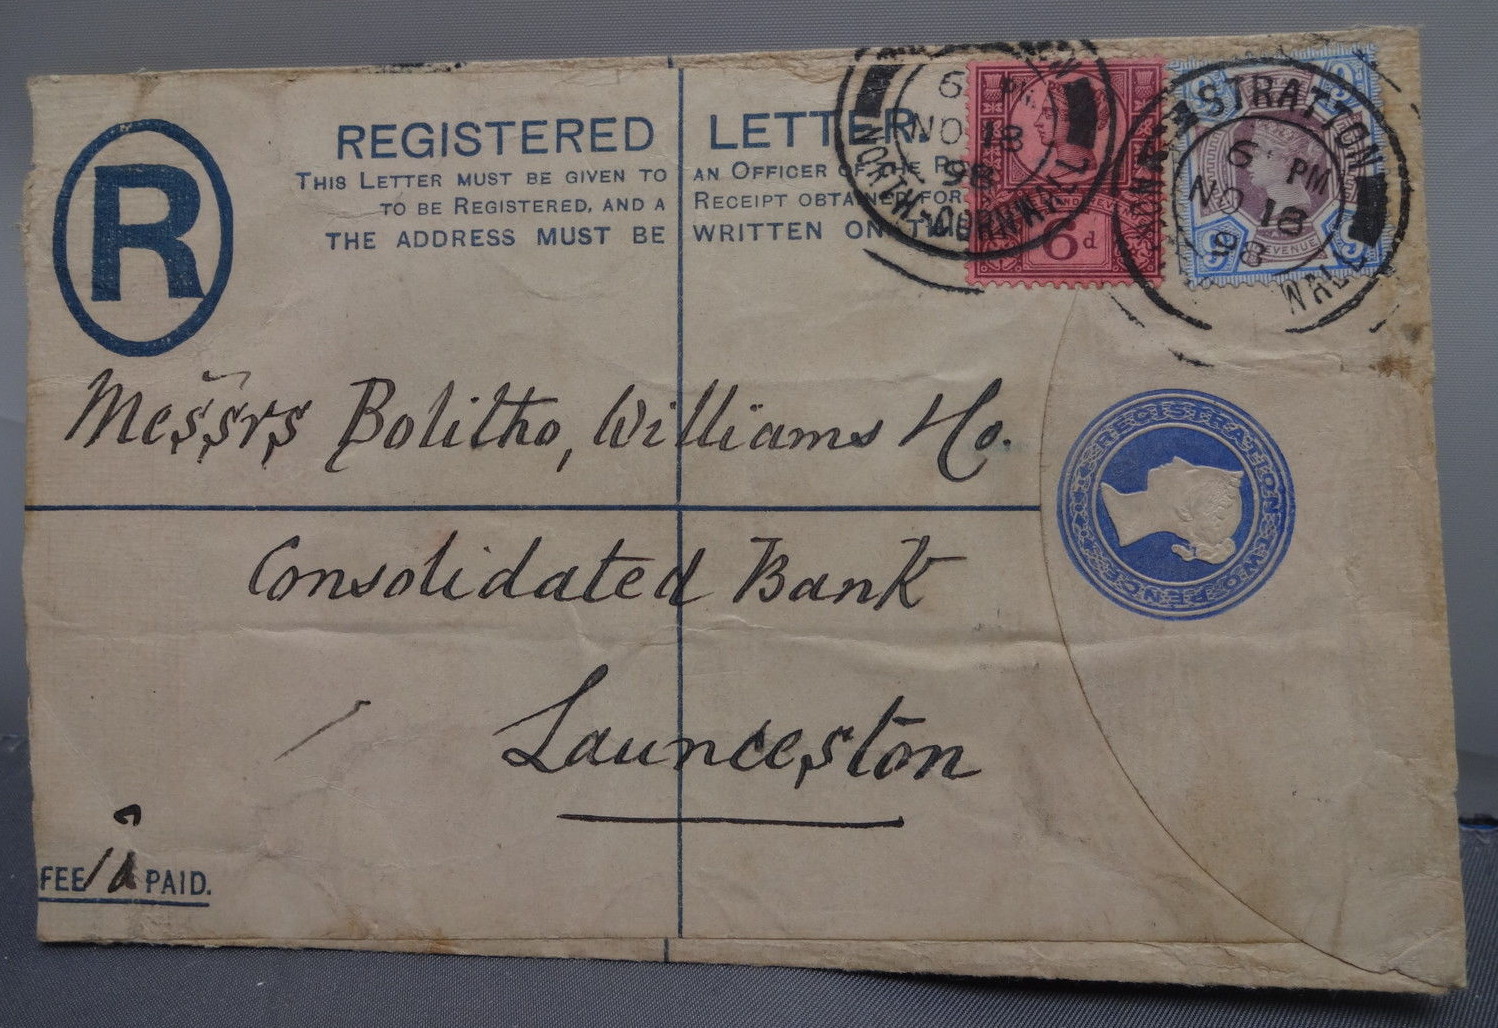 REGISTERED LETTER.
THIS LETTER MUST BE GIVEN TO AN OFFICER OF THE
TO BE REGISTERED, AND A RECEIPT OBTAINED FOR
THE ADDRESS MUST BE WRITTEN ON
R
6 PM
NO 18
98
NORTH-CORNWALL
6d
STRATTON
6 PM
NO 18
98
9
9
9
REVENUE
Messrs Bolitho, Williams & Co.
Consolidated Bank
Launceston
REGISTRATION TWO PENCE
FEE PAID.